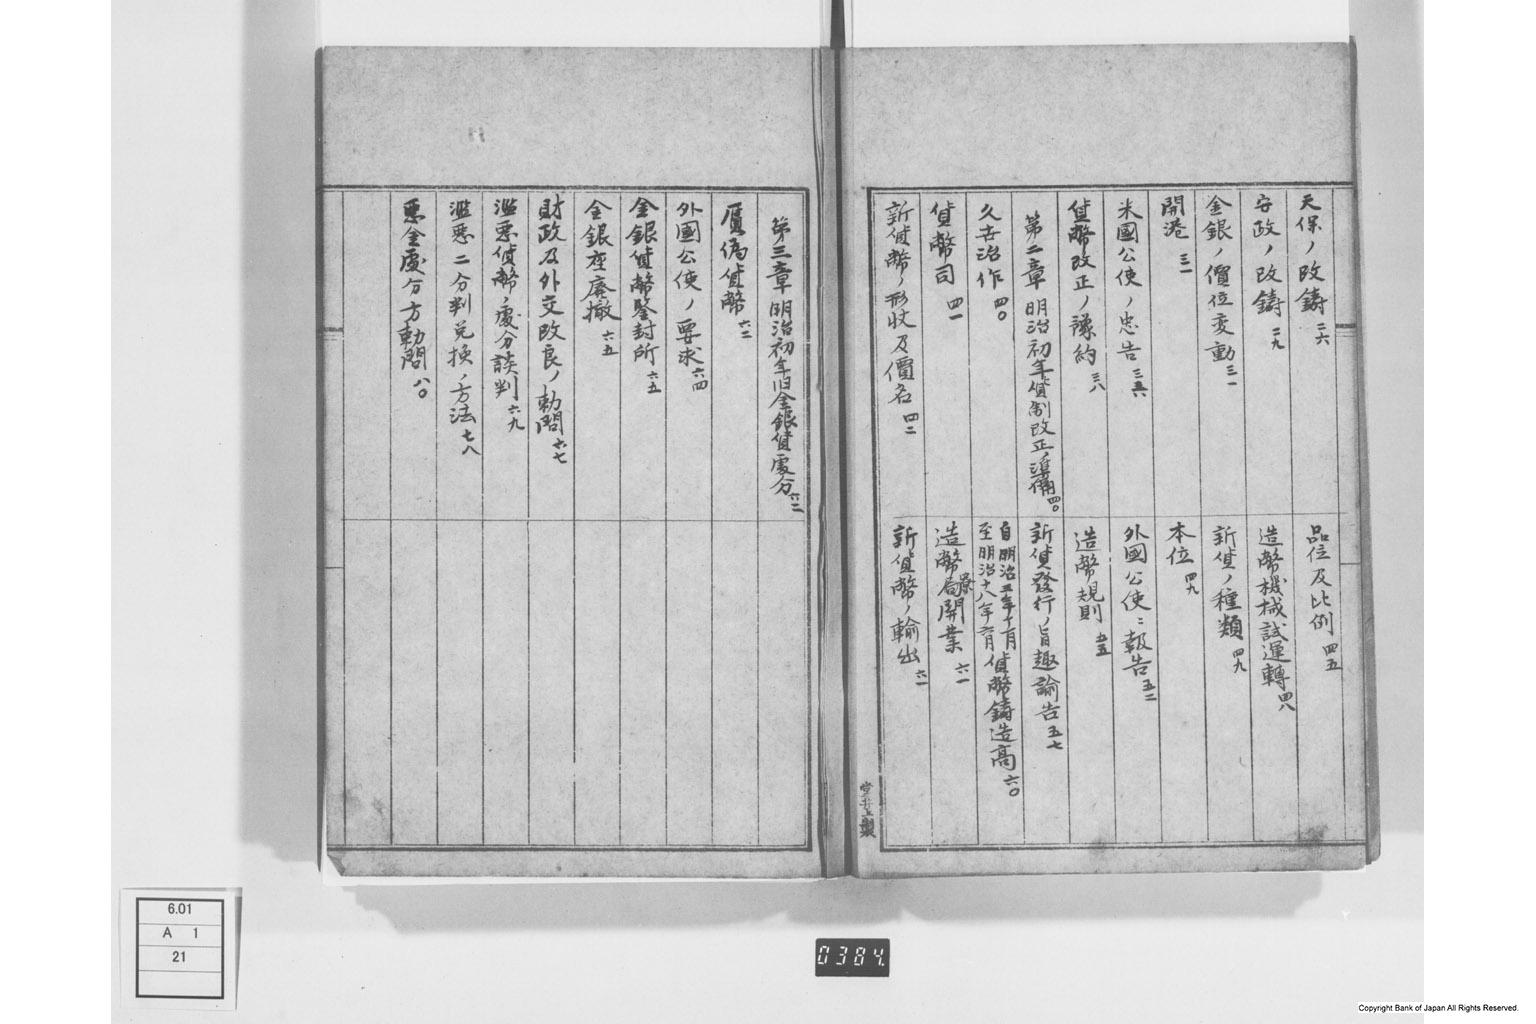 天保ノ改鋳 二六
安政ノ改鋳 二九
金銀ノ價位変動 三一
開港 三一
米國公使ノ忠告 三六
貨幣改正ノ豫約 三八
第二章 明治初年貨制改正ノ準備 四〇
久世治作 四〇
貨幣司 四一
新貨幣ノ形状及價名 四二
品位及比例 四五
造幣機械試運轉 四八
新貨ノ種類 四九
本位 四九
外國公使ニ報告 五二
造幣規則 五五
新貨發行ノ旨趣諭告 五七
自明治三年十一月
至明治十八年六月 貨幣鋳造高 六〇
造幣局開業 六一
寮
新貨幣ノ輸出 六一
堂井上製
第三章 明治初年旧金銀貨處分 六二
贋偽貨幣 六二
外國公使ノ要求 六四
金銀貨幣鑒封所 六五
金銀座廃撤 六五
財政及外交改良ノ勅問 六七
濫悪貨幣ノ處分談判 六九
濫悪二分判兌換ノ方法 七八
悪金處分方勅問 八〇
6.01
A 1
21
0384.
Copyright Bank of Japan All Rights Reserved.